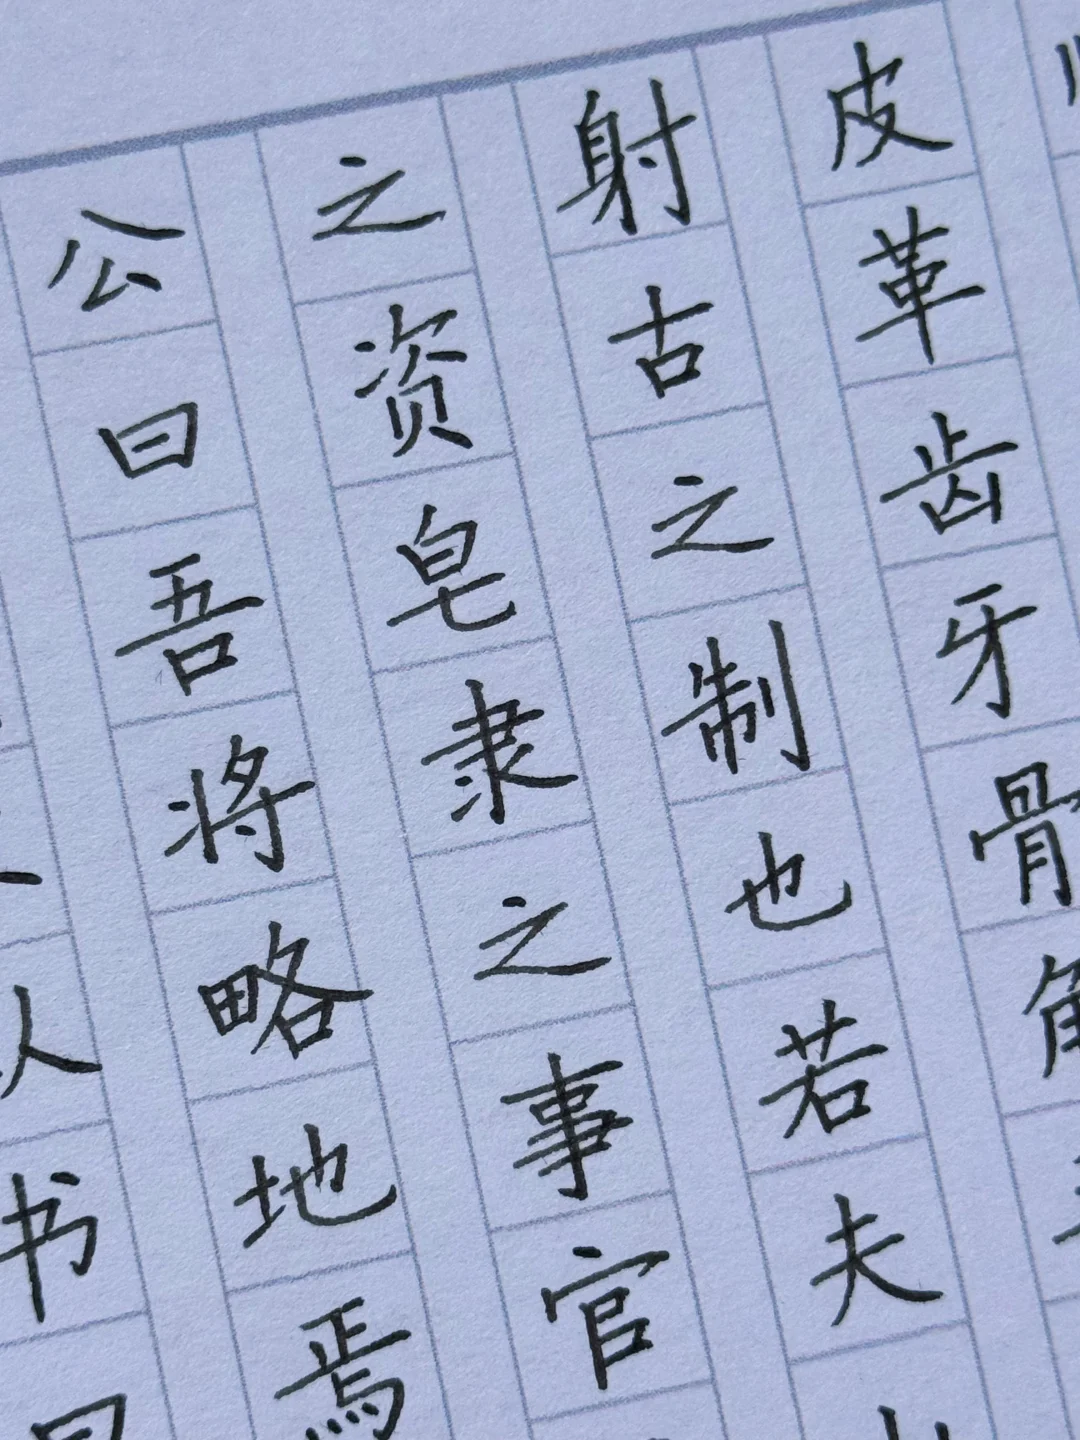 皮革齿牙骨角
射古之制也若夫
之资皂隶之事官
公曰吾将略地焉
人书曰